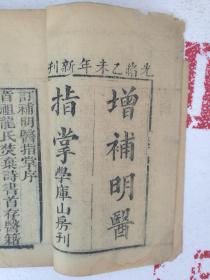 光緒乙未年新刊
增補明醫
指掌
學庫山房刊
訂補明醫指掌序
昔祖龍氏焚棄詩書首存醫籍